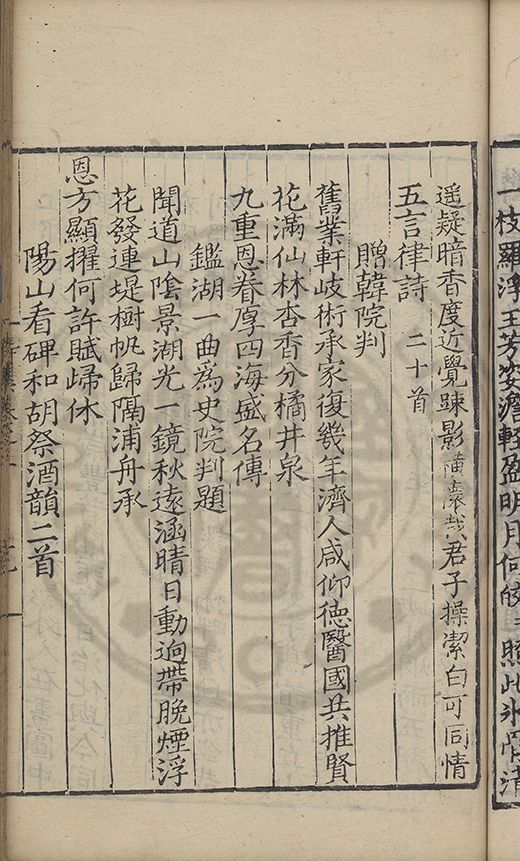 一枝羅浮玉芳姿澹輕盈明月何皎〻照此氷雪清
遥疑暗香度近覺踈影橫懷哉君子操潔白可同情
五言律詩 二十首
贈韓院判
舊業軒岐術承家復幾年濟人咸仰德醫國共推賢
花滿仙林杏香分橘井泉
九重恩眷厚四海盛名傳
鑑湖一曲為史院判題
聞道山陰景湖光一鏡秋遠涵晴日動逈帶晚煙浮
花發連堤樹帆歸隔浦舟承
恩方顯擢何許賦歸休
陽山看碑和胡祭酒韻二首